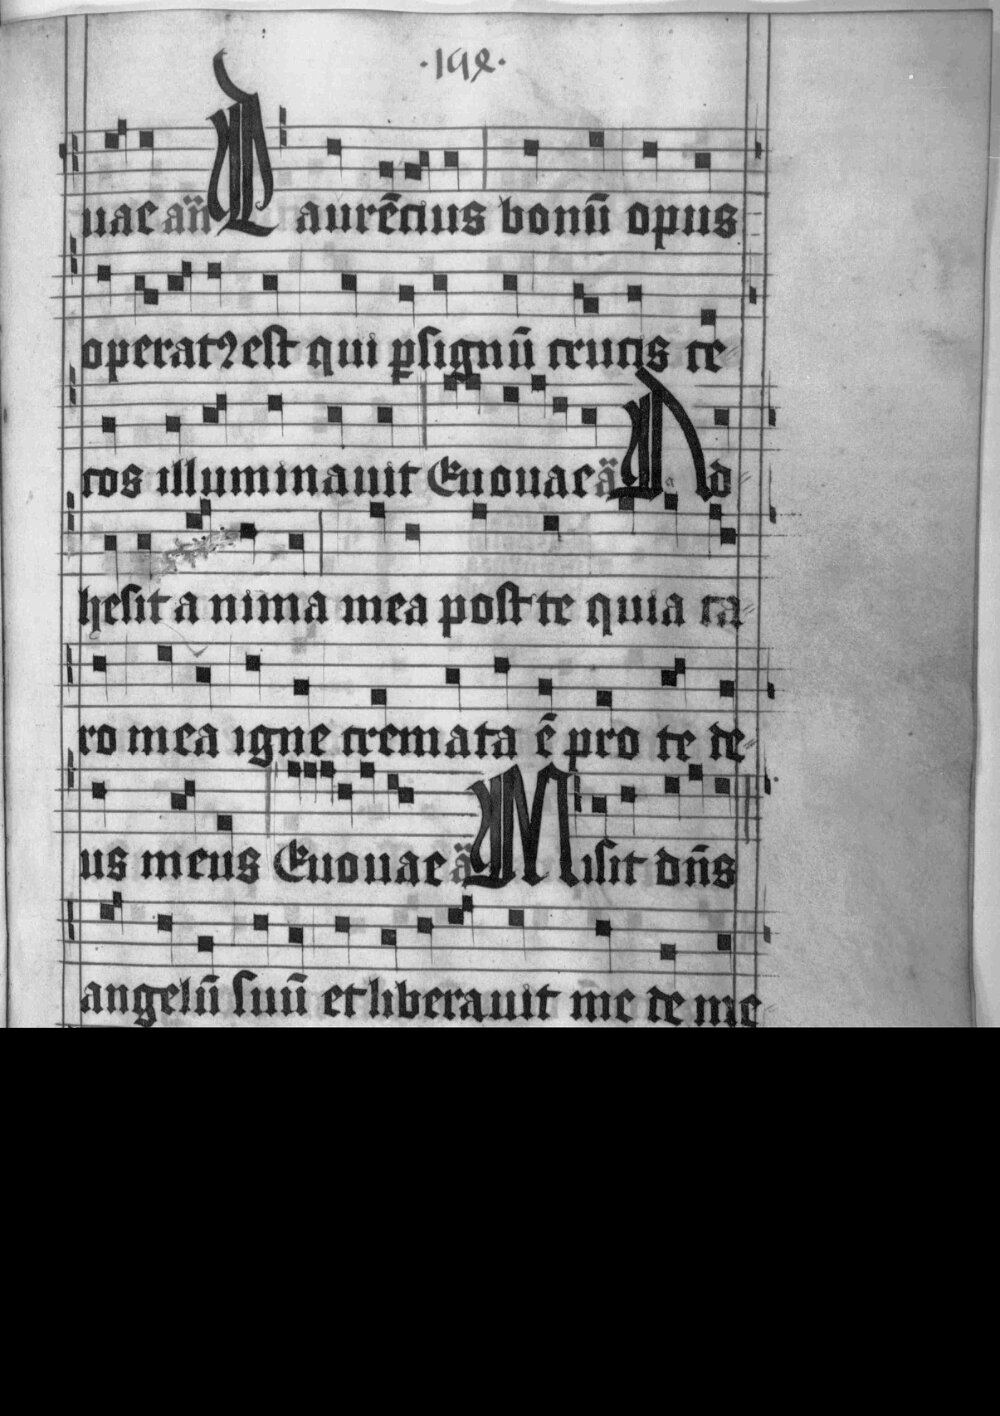 ·198·
uae añ Laurẽcius bonũ opus
operatꝰ est qui ꝑ signũ crucis ce
cos illuminauit Euouae ã Ad
hesit anima mea post te quia ca
ro mea igne cremata ẽ pro te de
us meus Euouae ã Misit dñs
angelũ suũ et liberauit me de me